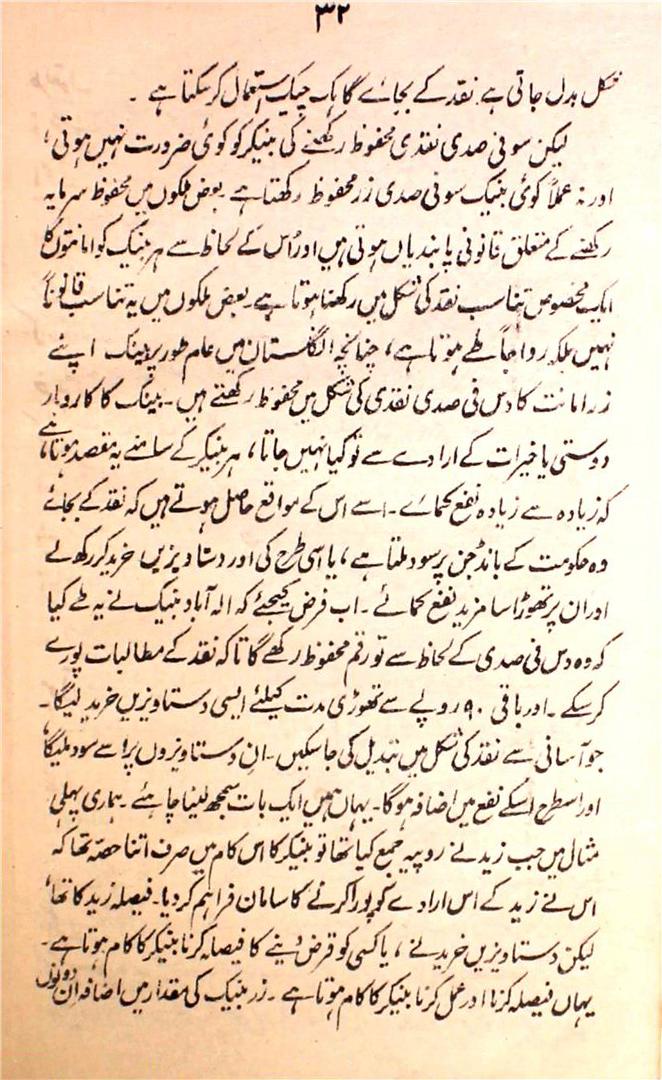 ۳۲
شکل بدل جاتی ہے۔ نقد کے بجائے گاہک چیک استعمال کر سکتا ہے ۔
لیکن سو فی صدی نقدی محفوظ رکھنے کی بنیکر کو کوئی ضرورت نہیں ہوتی ،
اور نہ عملاً کوئی بنیک سو فی صدی زر محفوظ رکھتا ہے۔ بعض ملکوں میں محفوظ سرمایہ
رکھنے کے متعلق قانونی پابندیاں ہوتی ہیں اور اُس کے لحاظ سے ہر بینک کو امانتوں کا
ایک مخصوص تناسب نقد کی شکل میں رکھنا ہوتا ہے۔ بعض ملکوں میں یہ تناسب قانوناً
نہیں بلکہ رواجاً طے ہوتا ہے ، چنانچہ انگلستان میں عام طور پر بینک اپنے
زر امانت کا دس فی صدی نقدی کی شکل میں محفوظ رکھتے ہیں ۔ بینک کا کاروبار
دوستی یا خیرات کے ارادے سے تو کیا نہیں جاتا ، ہر بنیکر کے سامنے یہ مقصد ہوتا ہے
کہ زیادہ سے زیادہ نفع کمائے ۔ اسے اس کے مواقع حاصل ہوتے ہیں کہ نقد کے بجائے
وہ حکومت کے بانڈ جن پر سود ملتا ہے ، یا اسی طرح کی اور دستاویزیں خرید کر رکھ لے
اور ان پر تھوڑا سا مزید نفع کمائے ۔ اب فرض کیجئے کہ الہ آباد بنیک نے یہ طے کیا
کہ وہ دس فی صدی کے لحاظ سے تو رقم محفوظ رکھے گا تاکہ نقد کے مطالبات پورے
کر سکے ۔ اور باقی ۹۰ روپے سے تھوڑی مدت کیلئے ایسی دستاویزیں خرید لیگا ۔
جو آسانی سے نقد کی شکل میں تبدیل کی جا سکیں ۔ ان دستاویزوں پر اسے سود ملیگا
اور اسطرح اسکے نفع میں اضافہ ہو گا ۔ یہاں ہمیں ایک بات سمجھ لینا چاہئے ۔ ہماری پہلی
مثال میں جب زید نے روپیہ جمع کیا تھا تو بنیکر کا اس کام میں صرف اتنا حصہ تھا کہ
اس نے زید کے اس ارادے کو پورا کرنے کا سامان فراہم کر دیا ۔ فیصلہ زید کا تھا ،
لیکن دستاویزیں خریدنے ، یا کسی کو قرض دینے کا فیصلہ کرنا بنیکر کا کام ہوتا ہے ۔
یہاں فیصلہ کرنا اور عمل کرنا بنیکر کا کام ہوتا ہے ۔ زر بنیک کی مقدار میں اضافہ ان دونوں